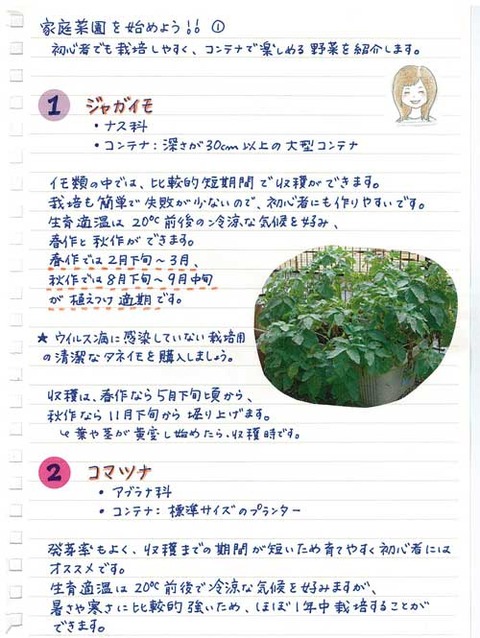 家庭菜園を始めよう!! ①
初心者でも栽培しやすく、コンテナで楽しめる野菜を紹介します。
1 ジャガイモ
・ナス科
・コンテナ:深さが30cm以上の大型コンテナ
イモ類の中では、比較的短期間で収穫ができます。
栽培も簡単で失敗が少ないので、初心者にも作りやすいです。
生育適温は20℃前後の冷涼な気候を好み、
春作と秋作ができます。
春作では2月下旬~3月、
秋作では8月下旬~9月中旬
が植えつけ適期です。
★ウイルス病に感染していない栽培用
の清潔なタネイモを購入しましょう。
収穫は、春作なら5月下旬頃から、
秋作なら11月下旬から堀り上げます。
↳葉や茎が黄変し始めたら、収穫時です。
2 コマツナ
・アブラナ科
・コンテナ:標準サイズのプランター
発芽率もよく、収穫までの期間が短いため育てやすく初心者には
オススメです。
生育適温は20℃前後で冷涼な気候を好みますが、
暑さや寒さに比較的強いため、ほぼ1年中栽培することが
できます。